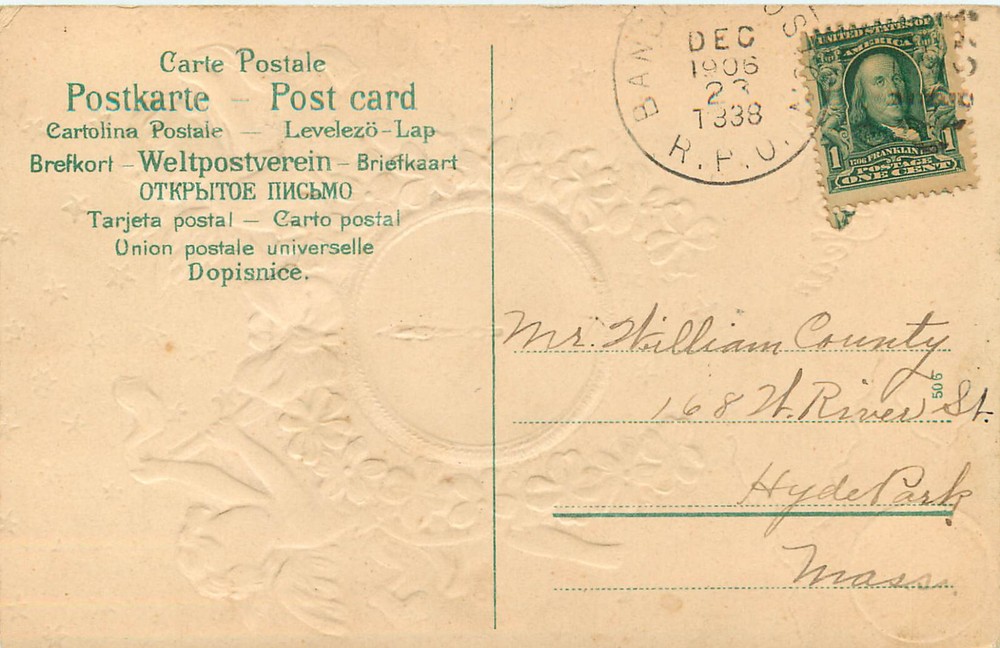 Carte Postale
Postkarte – Post card
Cartolina Postale — Levelezö-Lap
Brefkort – Weltpostverein – Briefkaart
ОТКРЫТОЕ ПИСЬМО
Tarjeta postal — Carto postal
Union postale universelle
Dopisnice.
DEC
1906
23
T338
R.P.O.
UNITED STATES OF
AMERICA
1 FRANKLIN 1
POSTAGE
ONE CENT
Mr. William County
168 W. River St.
506
Hyde Park
Mass